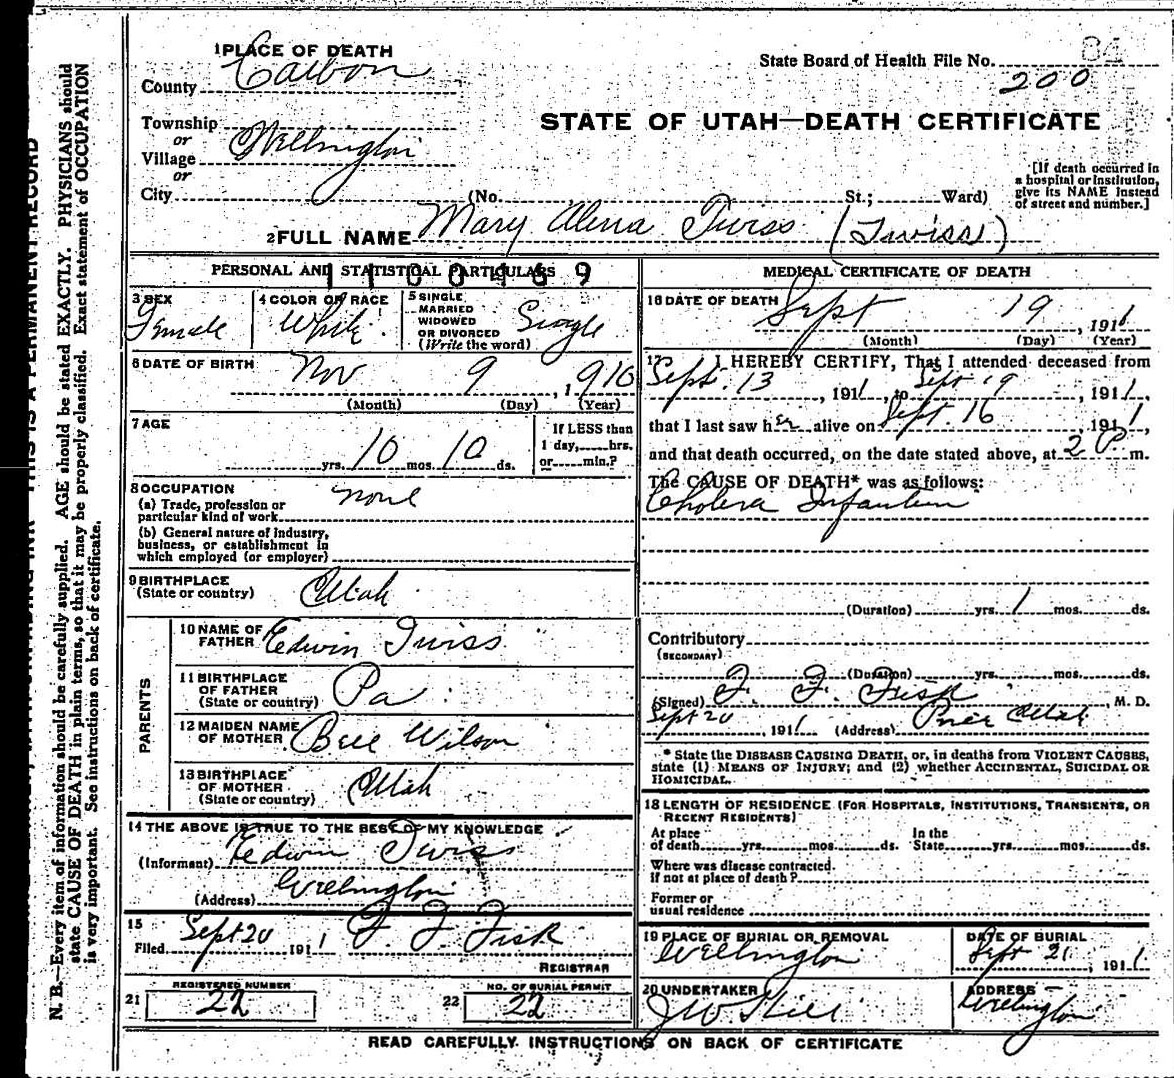 1 PLACE OF DEATH
County Carbon
State Board of Health File No. 84
200
STATE OF UTAH—DEATH CERTIFICATE
Township
or
Village Wellington
or
City (No. St.; Ward)
[If death occurred in
a hospital or institution,
give its NAME instead
of street and number.]
2 FULL NAME Mary Alena Twiss (Twiss)
PERSONAL AND STATISTICAL PARTICULARS
1100469
3 SEX
Female
4 COLOR OR RACE
White
5 SINGLE
MARRIED
WIDOWED
OR DIVORCED
(Write the word)
Single
6 DATE OF BIRTH
Nov 9, 1910
(Month) (Day) (Year)
7 AGE
yrs. 10 mos. 10 ds.
If LESS than
1 day, hrs.
or min.?
8 OCCUPATION
(a) Trade, profession or
particular kind of work none
(b) General nature of industry,
business, or establishment in
which employed (or employer)
9 BIRTHPLACE
(State or country) Utah
PARENTS
10 NAME OF
FATHER Edwin Twiss
11 BIRTHPLACE
OF FATHER
(State or country) Pa
12 MAIDEN NAME
OF MOTHER Bell Wilson
13 BIRTHPLACE
OF MOTHER
(State or country) Utah
14 THE ABOVE IS TRUE TO THE BEST OF MY KNOWLEDGE
(Informant) Edwin Twiss
(Address) Wellington
15
Filed Sept 20 1911 F. F. Fisk
REGISTRAR
REGISTERED NUMBER
21 22
NO. OF BURIAL PERMIT
22 22
MEDICAL CERTIFICATE OF DEATH
16 DATE OF DEATH
Sept 19, 1911
(Month) (Day) (Year)
17 I HEREBY CERTIFY, That I attended deceased from
Sept. 13, 1911, to Sept 19, 1911,
that I last saw her alive on Sept. 16, 1911
and that death occurred, on the date stated above, at 2 P m.
The CAUSE OF DEATH* was as follows:
Cholera Infantum
(Duration) yrs. 1 mos. ds.
Contributory
(SECONDARY)
(Duration) yrs. mos. ds.
(Signed) F. F. Fisk, M. D.
Sept 20, 1911 (Address) Price Utah
* State the DISEASE CAUSING DEATH, or, in deaths from VIOLENT CAUSES,
state (1) MEANS OF INJURY; and (2) whether ACCIDENTAL, SUICIDAL OR
HOMICIDAL.
18 LENGTH OF RESIDENCE (FOR HOSPITALS, INSTITUTIONS, TRANSIENTS, OR
RECENT RESIDENTS)
At place
of death yrs. mos. ds.
In the
State yrs. mos. ds.
Where was disease contracted.
if not at place of death?
Former or
usual residence
19 PLACE OF BURIAL OR REMOVAL
Wellington
DATE OF BURIAL
Sept 21, 1911
20 UNDERTAKER
J W Hill
ADDRESS
Wellington
READ CAREFULLY INSTRUCTIONS ON BACK OF CERTIFICATE
N. B.—Every item of information should be carefully supplied. AGE should be stated EXACTLY. PHYSICIANS should
state CAUSE OF DEATH in plain terms, so that it may be properly classified. Exact statement of OCCUPATION
is very important. See instructions on back of certificate.
THIS IS A PERMANENT RECORD